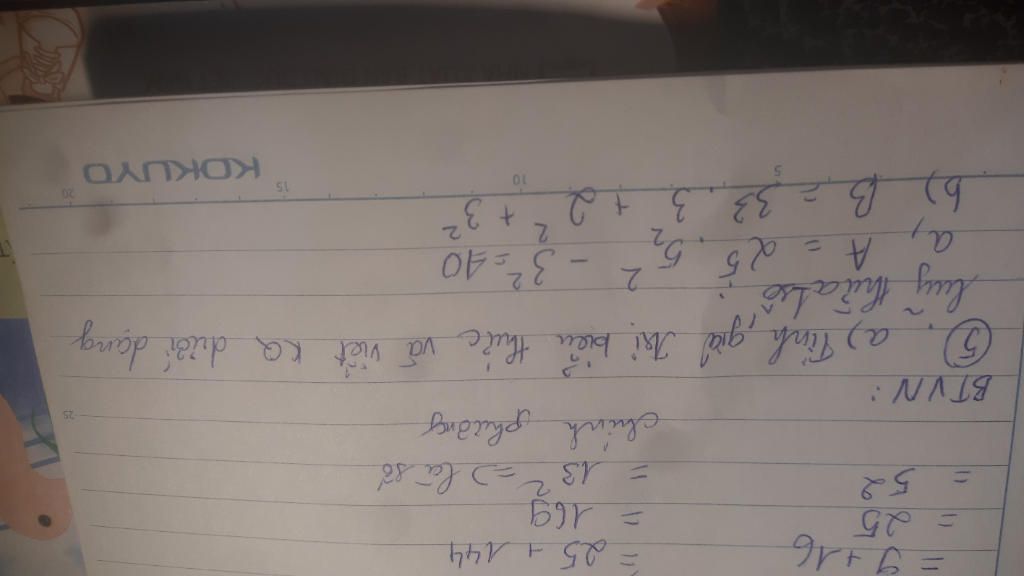 = 9 + 16 = 25 + 144
= 25 = 169
= 52 = 13² => là số
chính phương
25
BTVN :
5 a) Tính giá trị biểu thức và viết KQ dưới dạng
luỹ thừa
a, A = 25 . 5² 2 - 3² =
b) B = 33 . 3 + 2² + 3²
5 10 15 20
KOKUYO